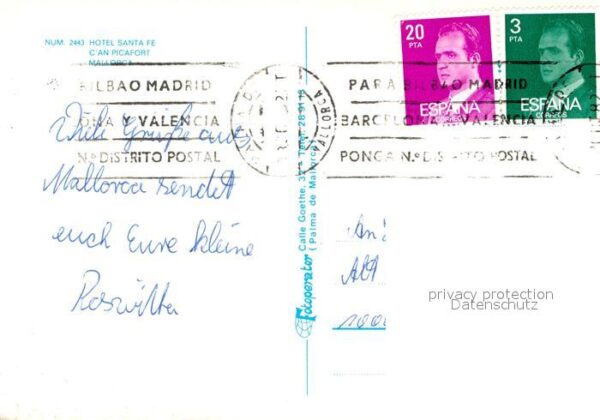 NUM. 2443 HOTEL SANTA FE
C'AN PICAFORT
MALLORCA
BILBAO MADRID
ONA Y VALENCIA
N.º DISTRITO POSTAL
PARA BILBAO MADRID
BARCELONA VALENCIA
PONGA N.º DISTRITO POSTAL
20
PTA
ESPAÑA
CORREOS
3
PTA
ESPAÑA
CORREOS
Viele Grüße aus
Mallorca sendet
euch Eure kleine
Roswitha
Fotoperator
Calle Goethe, 37
(Palma de Mallorca)
An
privacy protection
Datenschutz